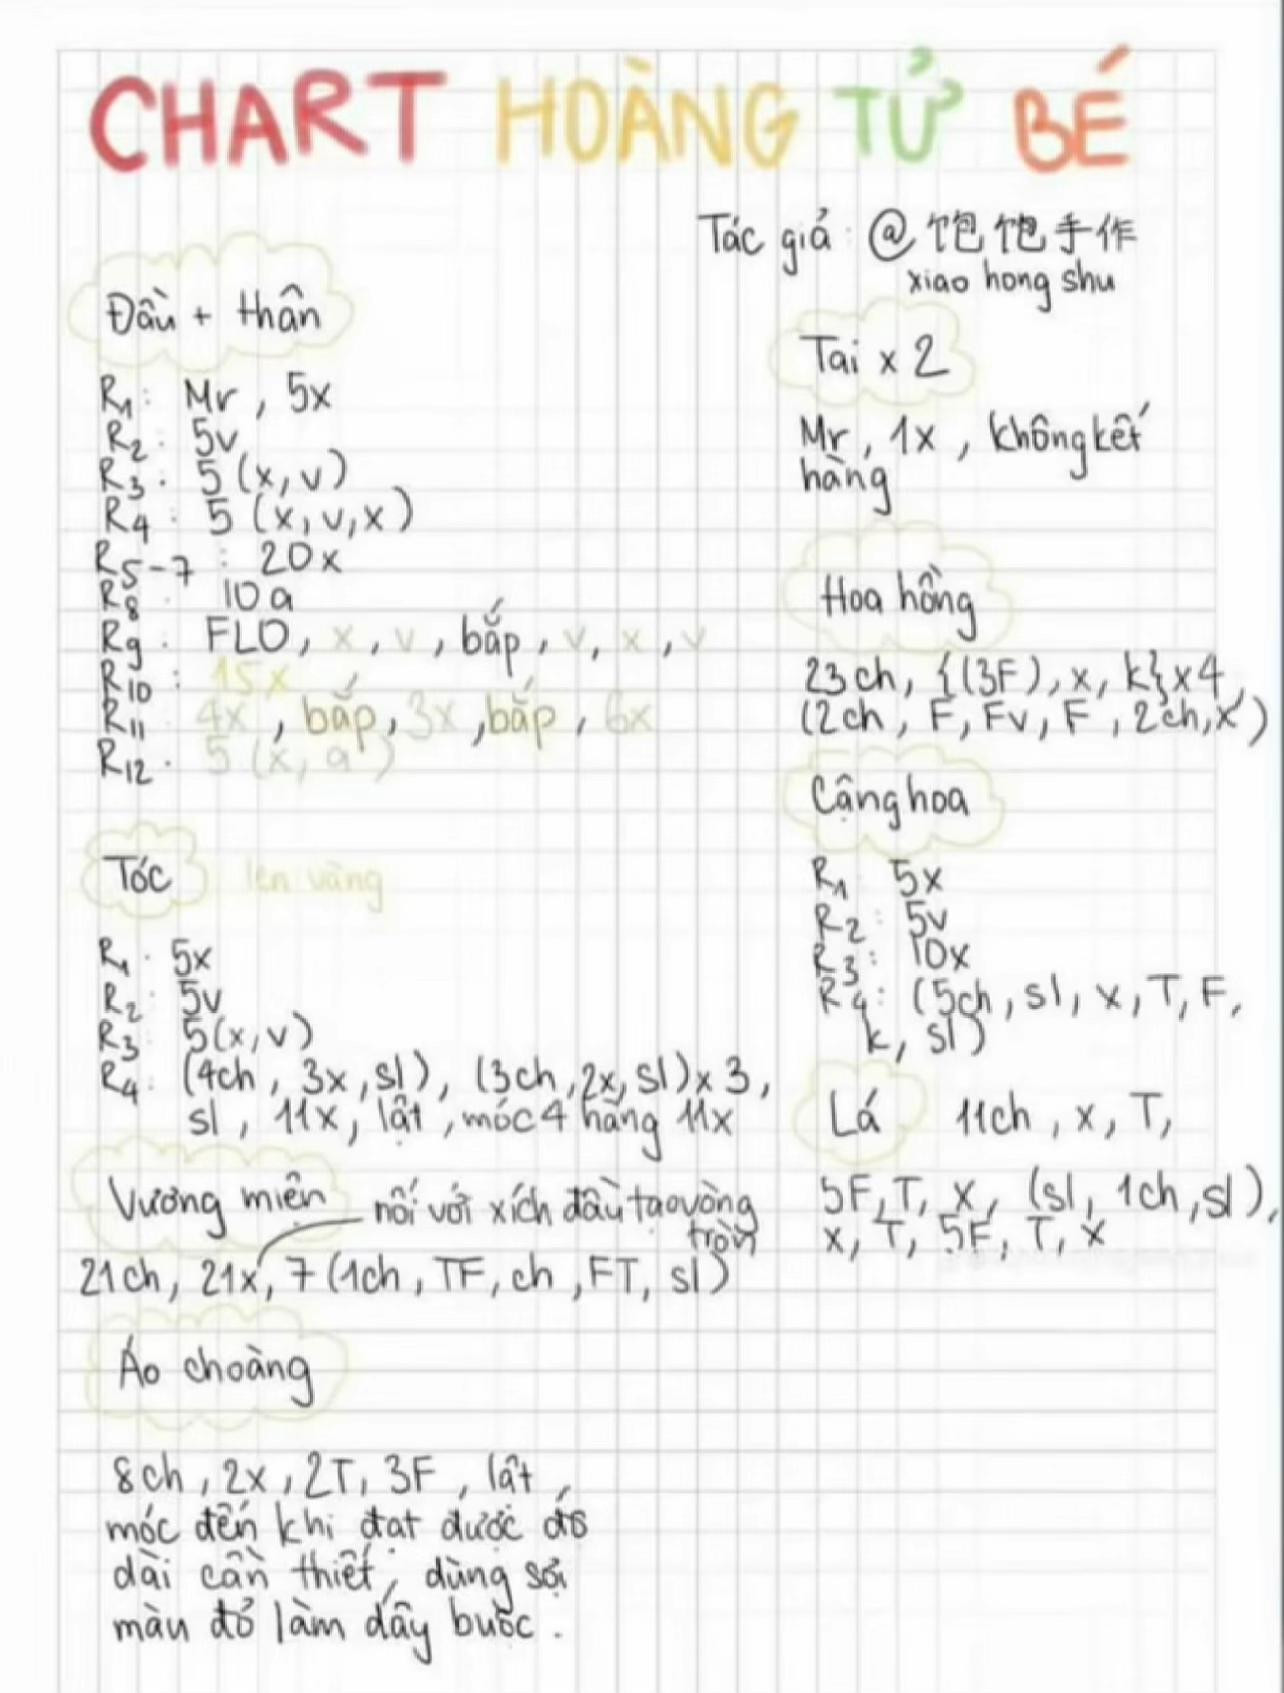 CHART HOÀNG TỬ BÉ
Tác giả: @饱饱手作
xiao hong shu
Đầu + thân
R1: Mr, 5x
R2: 5v
R3: 5(x,v)
R4: 5(x,v,x)
R5-7: 20x
R8: 10a
R9: FLO, x, v, bắp, v, x, v
R10: 15x
R11: 4x, bắp, 3x, bắp, 6x
R12: 5(x, a)
Tóc len vàng
R1: 5x
R2: 5v
R3: 5(x,v)
R4: (4ch, 3x, sl), (3ch, 2x, sl)x3,
sl, 11x, lật, móc 4 hàng 11x
Vương miện nối với xích đầu tạo vòng
tròn
21ch, 21x, 7(1ch, TF, ch, FT, sl)
Áo choàng
8ch, 2x, 2T, 3F, lật,
móc đến khi đạt được độ
dài cần thiết, dùng sợi
màu đỏ làm dây buộc.
Tai x 2
Mr, 1x, không kết
hàng
Hoa hồng
23ch, {(3F), x, k}x4,
(2ch, F, Fv, F, 2ch, x)
Cộng hoa
R1 5x
R2: 5v
R3: 10x
R4: (5ch, sl, x, T, F,
k, sl)
Lá 11ch, x, T,
5F, T, x, (sl, 1ch, sl),
x, T, 5F, T, x